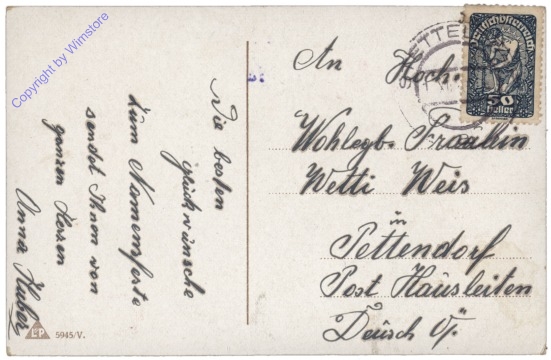 Copyright by Wimstore
Die besten
glückwünsche
zum Namensfeste
sendet Ihnen von
ganzen Herzen
Anna Huber
LP
5945/V.
An Hoch.
Wohlegb. Fräulein
Wetti Weis
in
Pettendorf
Post Hausleiten
Deutschösterreich
50
Heller